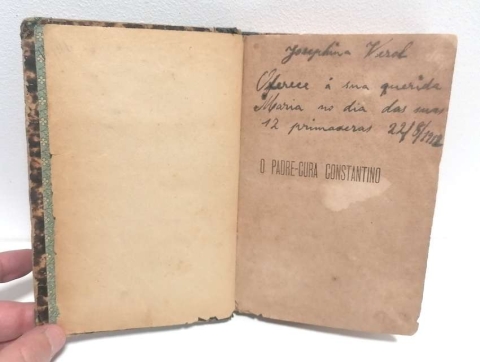 Josephina
Oferece á sua querida
Maria no dia das suas
12 primaveras 22/5/
O PADRE-CURA CONSTANTINO